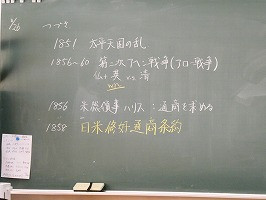 4/26 つづき
1851 太平天国の乱
1856~60 第二次アヘン戦争(アロー戦争)
仏+英 vs 清
win
1856 米総領事ハリス:通商を求める
1858 日米修好通商条約